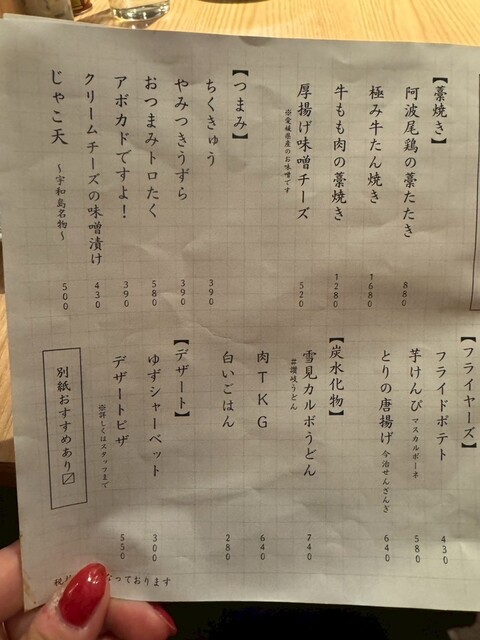 【藁焼き】
阿波尾鶏の藁たたき 880
極み牛たん焼き 1680
牛もも肉の藁焼き 1280
厚揚げ味噌チーズ 520
※愛媛県産のお味噌です
【つまみ】
ちくきゅう 390
やみつきうずら 390
おつまみトロたく 580
アボカドですよ！ 390
クリームチーズの味噌漬け 430
じゃこ天 ～宇和島名物～ 500
【フライヤーズ】
フライドポテト 430
芋けんぴ マスカルポーネ 580
とりの唐揚げ 今治せんざんぎ 640
【炭水化物】
雪見カルボうどん 740
#讃岐うどん
肉TKG 640
白いごはん 280
【デザート】
ゆずシャーベット 300
デザートピザ 550
※詳しくはスタッフまで
別紙おすすめあり〼
なっております